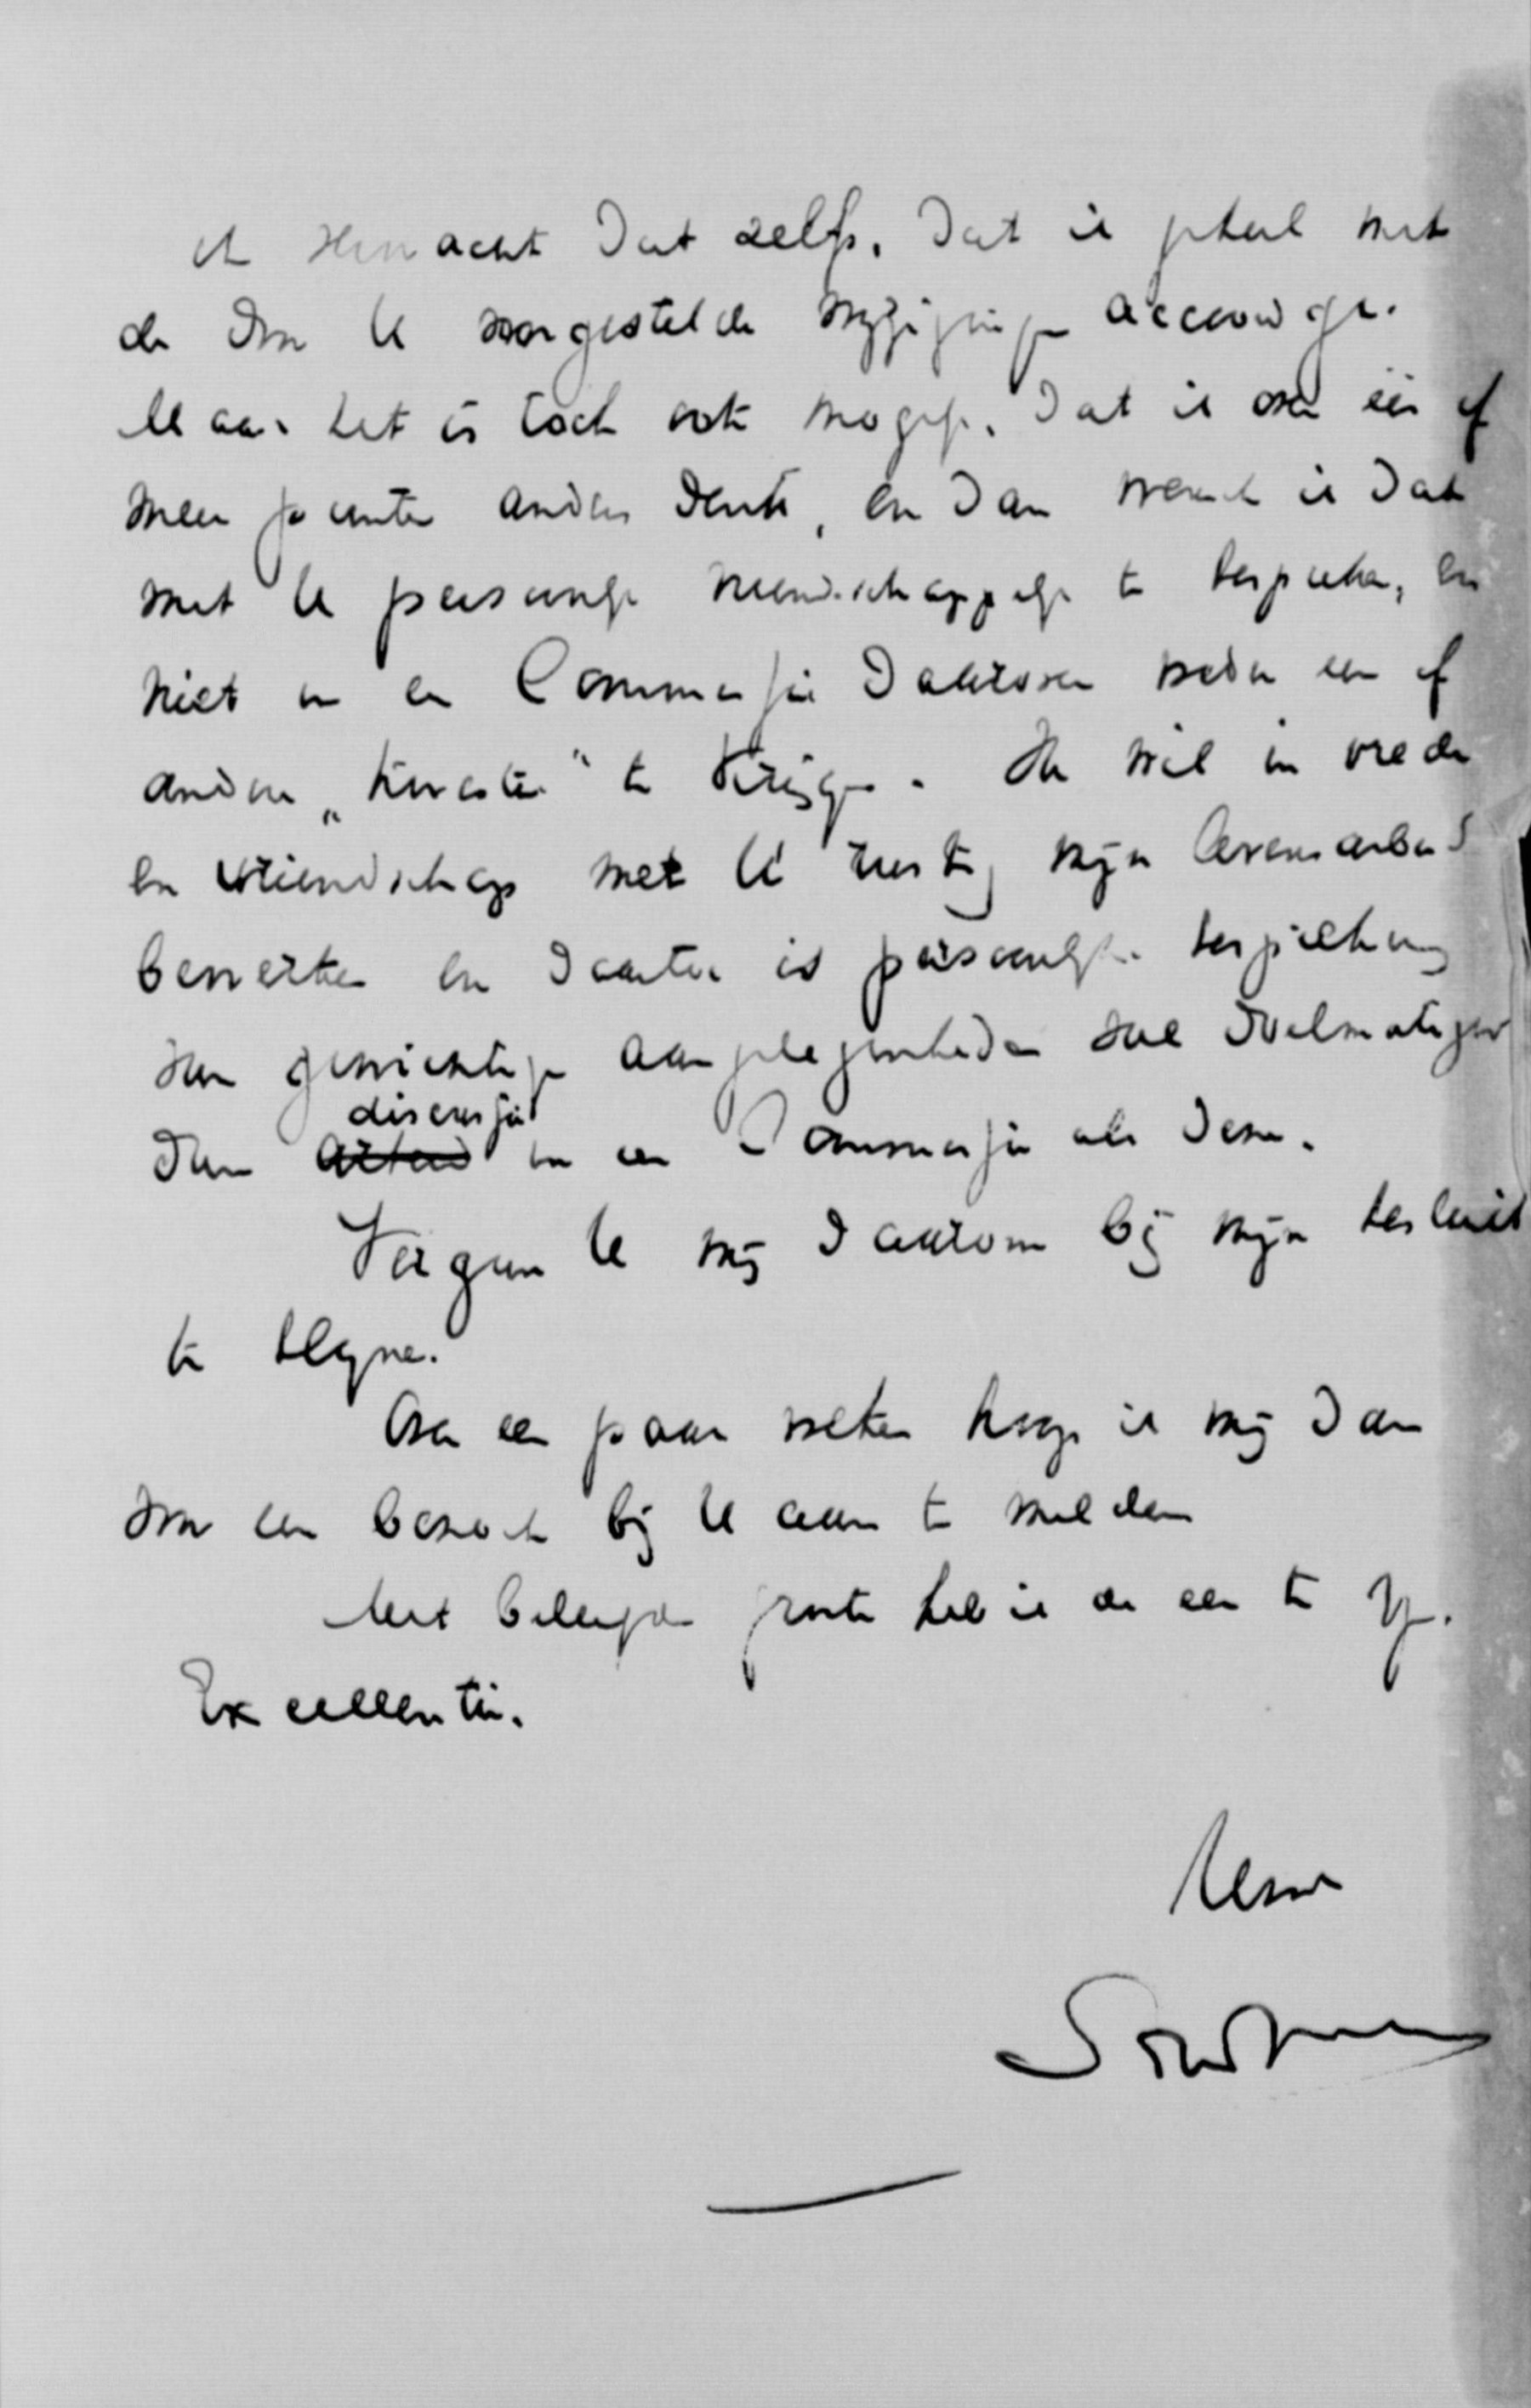 ik verwacht dat zelfs, dat ik geheel met
de door U voorgestelde wijzigingen accoord ga.
Maar het is toch ook mogelijk, dat ik over één of
meer punten anders denk, en dan wensch ik dat
met U persoonlijk vriendschappelijk te bespreken, en
niet in een Commissie daarover weder een of
andere „kwestie" te krijgen. Ik wil in vrede
en vriendschap met U rustig mijn levensarbeid
bewerken en daartoe is persoonlijke bespreking
van gewichtige aangelegenheden veel doelmatiger
dan discussie in een Commissie als deze.
Vergun U mij daarom bij mijn besluit
te blijven.
Over een paar weken hoop ik mij dan
voor een bezoek bij U aan te melden
Met beleefde groete heb ik de eer te zijn.
Excellentie.
Uwe